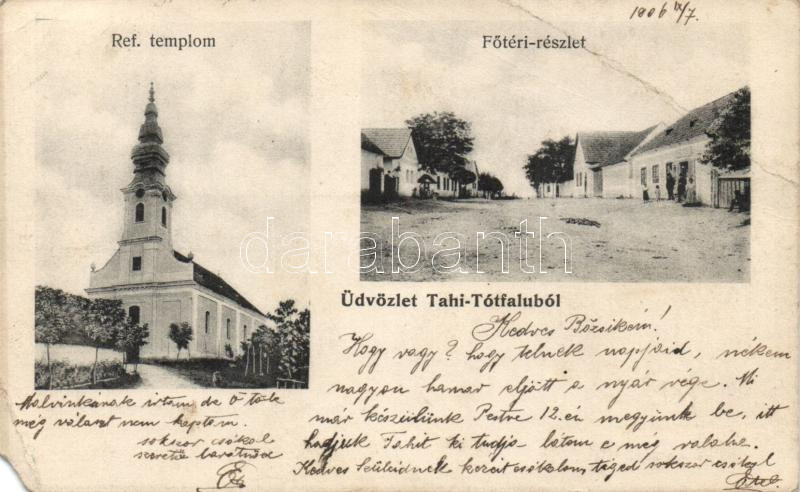 1906 IX/7.
Ref. templom
Főtéri-részlet
darabanth
Üdvözlet Tahi-Tótfaluból
Kedves Bözsikém!
Hogy vagy? hogy telnek napjaid, nékem
nagyon hamar eljött a nyár vége. Mi
már készülünk Pestre 12.én megyünk be, itt
hadjuk Tahit ki tudja látom e még valaha.
Kedves Szüleidnek kezeit csókolom, téged sokszor csókol
Etel.
Malvinkának irtam de ő tőle
még választ nem kaptam.
sokszor csókol
szerető barátnőd